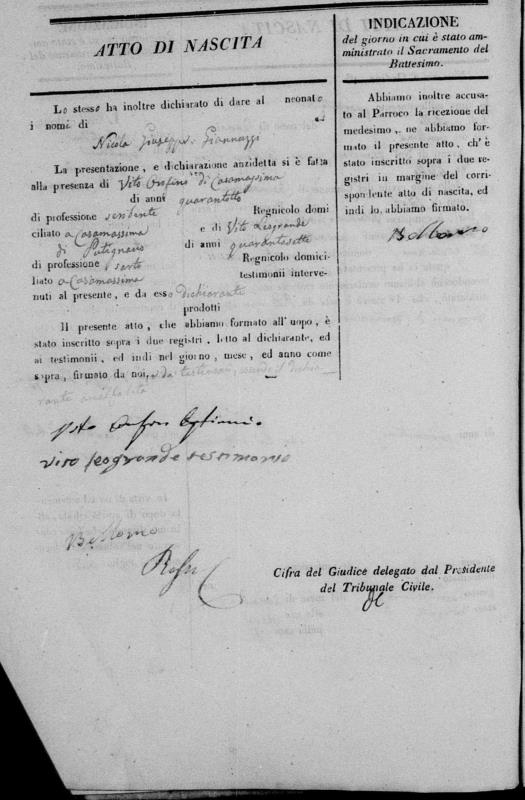 ATTO DI NASCITA
Lo stesso ha inoltre dichiarato di dare al neonato
i nomi di
Nicola Giuseppe Giannuzzi
La presentazione, e dichiarazione anzidetta si è fatta
alla presenza di Vito Onofrio di Casamassima
di anni quarantotto
di professione Regnicolo domi
ciliato a Casamassima e di Vito Leogrande
di Putignano di anni quarantasette
di professione sarto Regnicolo domici-
liato a Casamassima testimonii interve-
nuti al presente, e da esso dichiarante
prodotti
Il presente atto, che abbiamo formato all' uopo, è
stato inscritto sopra i due registri, letto al dichiarante, ed
ai testimonii, ed indi nel giorno, mese, ed anno come
sopra, firmato da noi, e da testimoni, essendo il dichia
rante analfabeta
INDICAZIONE
del giorno in cui è stato am-
ministrato il Sacramento del
Battesimo.
Abbiamo inoltre accusa-
to al Parroco la ricezione del
medesimo, ne abbiamo for-
mato il presente atto, ch' è
stato inscritto sopra i due re-
gistri in margine del corri-
spondente atto di nascita, ed
indi lo abbiamo firmato.
Vito
vito leogrande testimonio
Cifra del Giudice delegato dal Presidente
del Tribunale Civile.